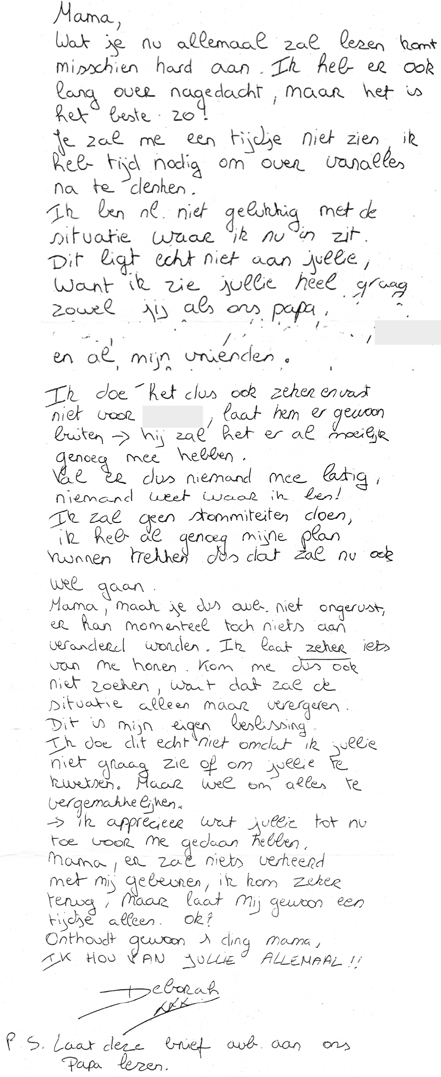 Mama,
Wat je nu allemaal zal lezen komt
misschien hard aan. Ik heb er ook
lang over nagedacht, maar het is
het beste zo!
Je zal me een tijdje niet zien, ik
heb tijd nodig om over vanalles
na te denken.
Ik ben nl. niet gelukkig met de
situatie waar ik nu in zit.
Dit ligt echt niet aan jullie,
want ik zie jullie heel graag
zowel jij als ons papa,
en al mijn vrienden.
Ik doe het dus ook zeker en vast
niet voor , laat hem er gewoon
buiten → hij zal het er al moeilijk
genoeg mee hebben.
Val er dus niemand mee lastig,
niemand weet waar ik ben!
Ik zal geen stommiteiten doen,
ik heb al genoeg mijne plan
kunnen trekken dus dat zal nu ook
wel gaan.
Mama, maak je dus aub. niet ongerust,
er kan momenteel toch niets aan
veranderd worden. Ik laat zeker iets
van me horen. Kom me dus ook
niet zoeken, want dat zal de
situatie alleen maar verergeren.
Dit is mijn eigen beslissing.
Ik doe dit echt niet omdat ik jullie
niet graag zie of om jullie te
kwetsen. Maar wel om alles te
vergemakkelijken.
→ ik apprecieer wat jullie tot nu
toe voor me gedaan hebben.
Mama, er zal niets verkeerd
met mij gebeuren, ik kom zeker
terug, maar laat mij gewoon een
tijdje alleen. ok?
Onthoudt gewoon 1 ding mama,
IK HOU VAN JULLIE ALLEMAAL!!
Deborah
xxx
P.S. Laat deze brief aub. aan ons
Papa lezen.